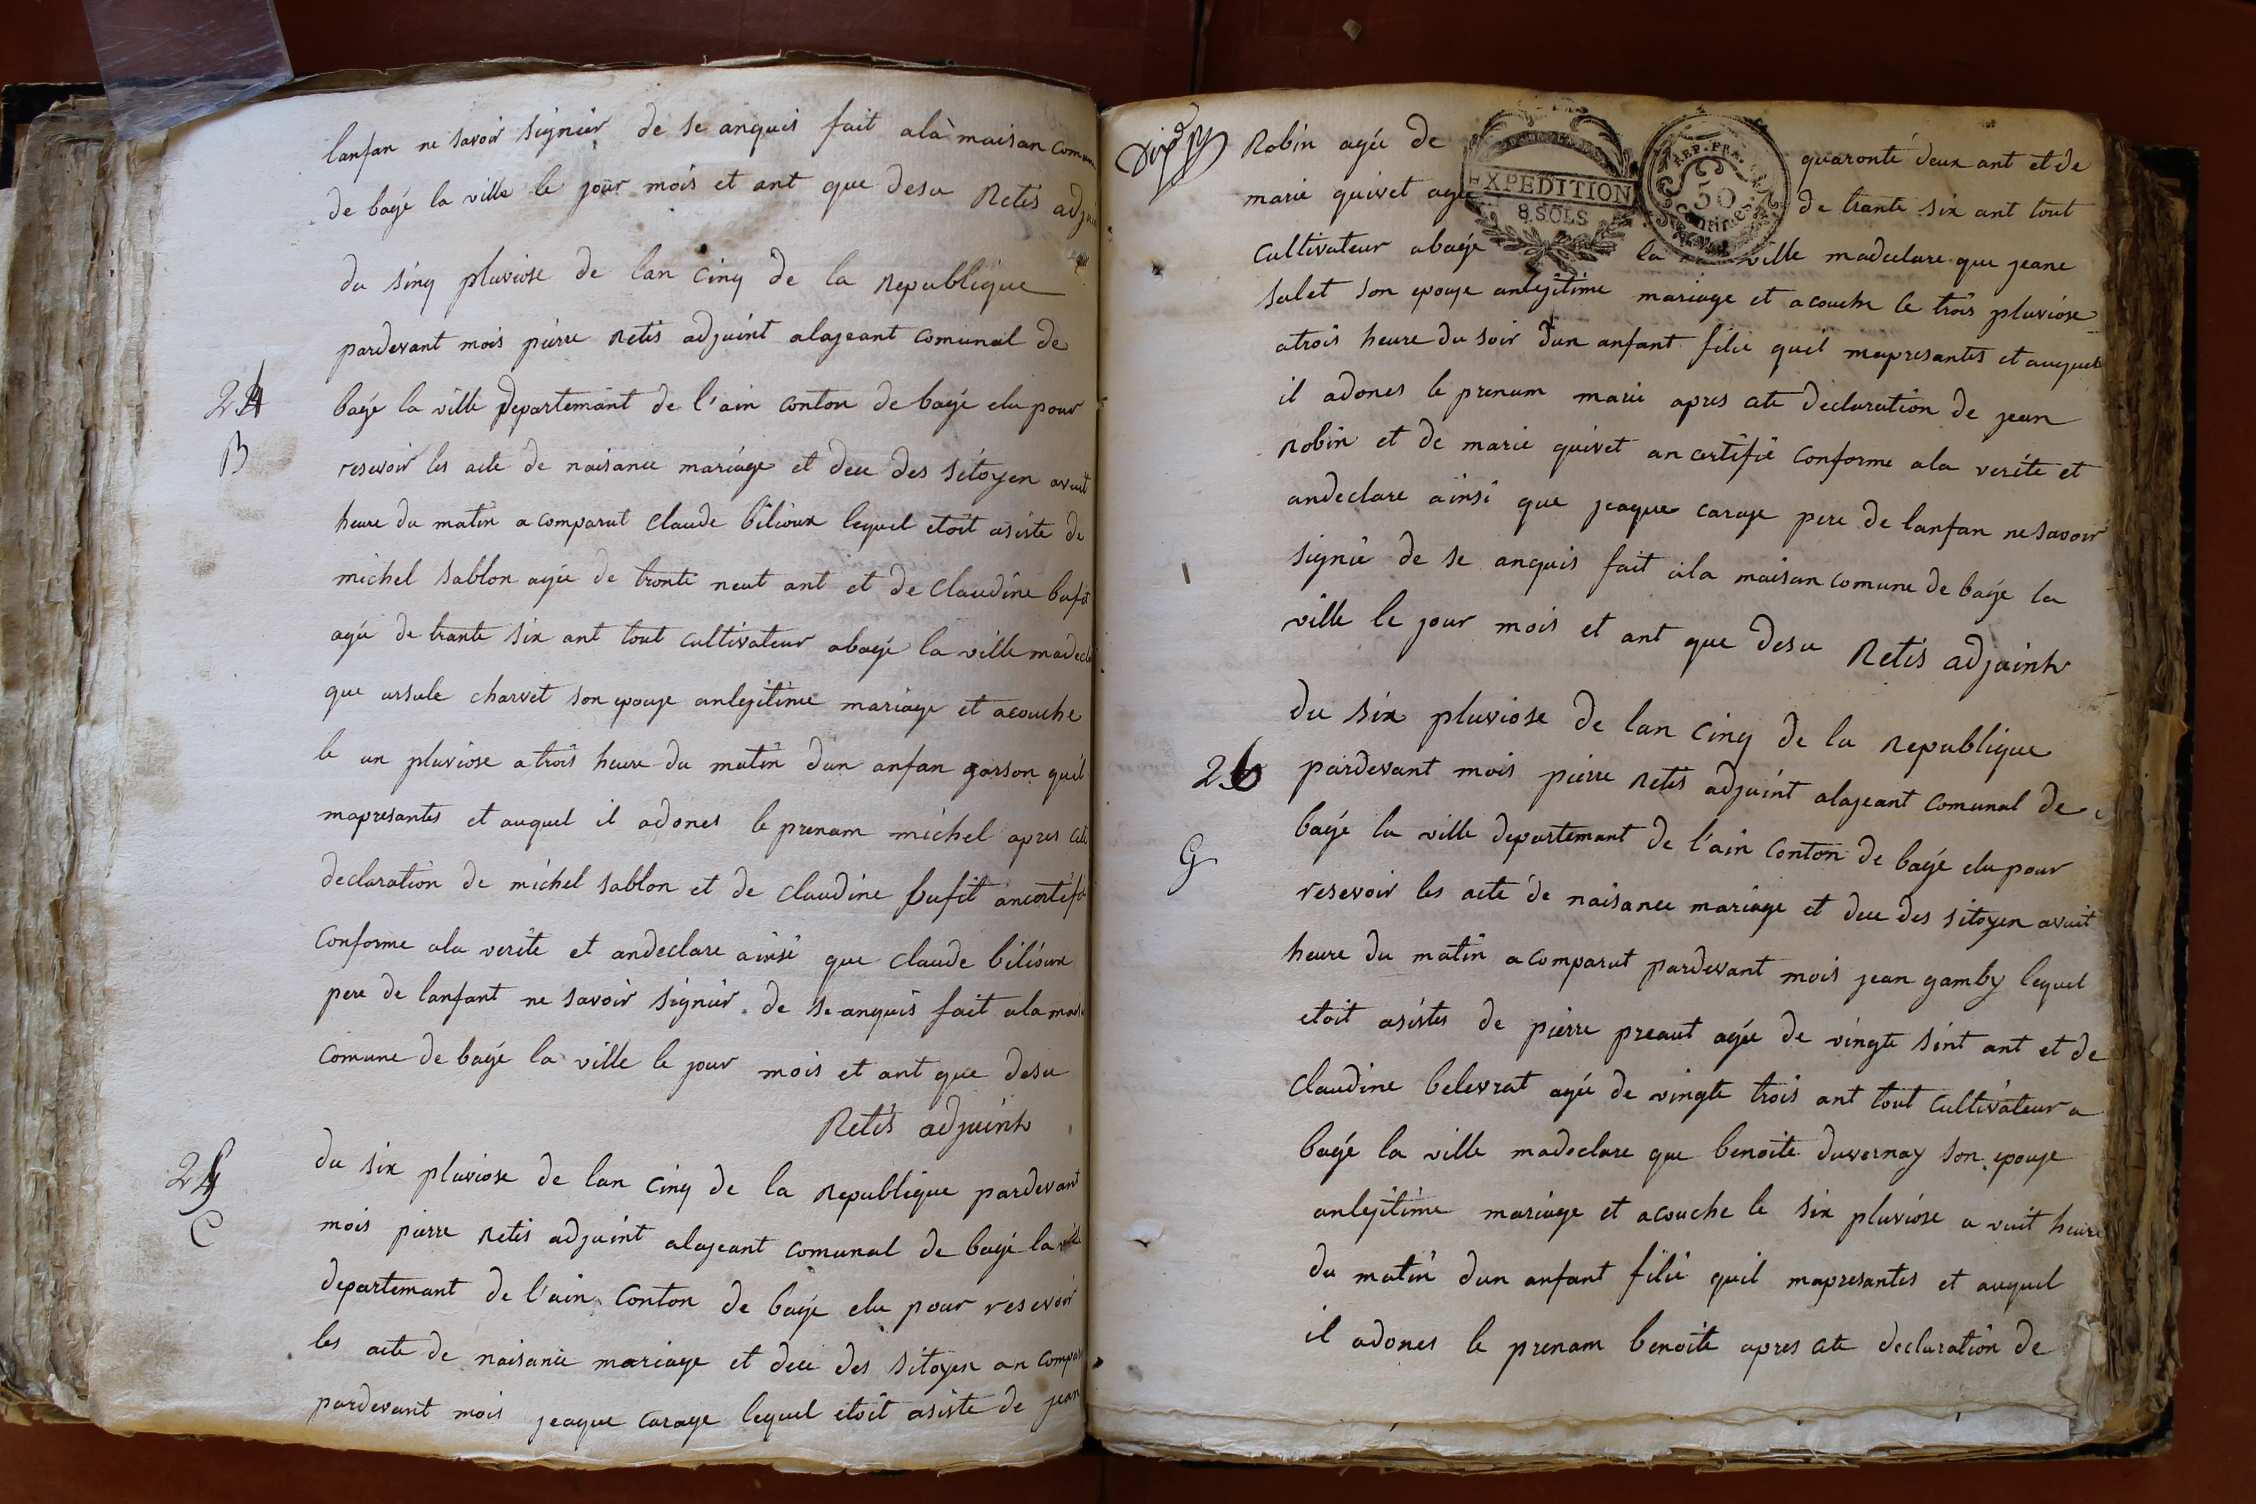 lanfan ne savoir signier de se anquis fait alà maison comun
de bagé la ville le jour mois et ant que desu Retis adjui
du sinq pluviose de lan cinq de la Republique
pardevant mois pierre Retis adjuint alajeant comunal de
24
bagé la ville departemant de l'ain conton de bagé elu pour
B
resevoir les acte de naisance mariage et dece des sitoyen avuit
heure du matin a comparut claude bilioux lequel etoit asiste de
michel sablon agée de trente neut ant et de claudine bufit
agée de trante six ant tout cultivateur abagé la ville madecla
que ursule charvet son epouse anlegitime mariage et acouche
le un pluviose atrois heure du matin dun anfan garson quil
mapresantes et auquel il adones le prenam michel apres cete
declaration de michel sablon et de claudine bufit ancertifi
conforme ala verite et andeclare ainsi que claude bilioux
pere de lanfant ne savoir signier de se anquis fait ala mais
comune de bagé la ville le jour mois et ant que desu
Retis adjuint
25
du six pluviose de lan cinq de la Republique pardevant
C
mois pierre Retis adjuint alajeant comunal de bagé la ville
departemant de l'ain conton de bagé elu pour resevoir
les acte de naisance mariage et dece des sitoyen an compar
pardevant mois jeaque carage lequel etoit asiste de jean
Robin agée de quaronte deux ant et de
EXPEDITION
8 SOLS
REP. FRA.
50
centimes
marie quivet agée de trante six ant tout
cultivateur abagé la ville madeclare que jeane
salet son epouse anlegitime mariage et acouche le trois pluviose
atrois heure du soir dun anfant filie quil mapresantes et auquel
il adones le prenam marie apres cete declaration de jean
Robin et de marie quivet an certifie conforme ala verite et
andeclare ainsi que jeaque caraje pere de lanfan ne savoir
signie de se anquis fait ala maison comune de bagé la
ville le jour mois et ant que desu Retis adjuint
du six pluviose de lan cinq de la Republique
26
pardevant mois pierre Retis adjuint alajeant comunal de
bagé la ville departemant de l'ain conton de bagé elu pour
G
resevoir les acte de naisance mariage et dece des sitoyen avuit
heure du matin a comparut pardevant mois jean gamby lequel
etoit asistes de pierre preaut agée de vingte sint ant et de
claudine belevrat agée de vingte trois ant tout cultivateur a
bagé la ville madeclare que benoite duvernay son epouse
anlegitime mariage et acouche le six pluviose a vuit heure
du matin dun anfant filie quil mapresantes et auquel
il adones le prenam benoite apres cete declaration de